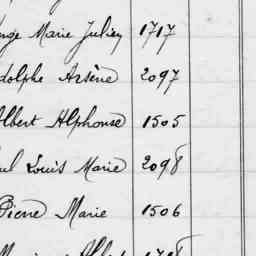 Marie Julien 1717
dolphe Arsène 2097
Albert Alphonse 1505
ul Louis Marie 2098
Pierre Marie 1506